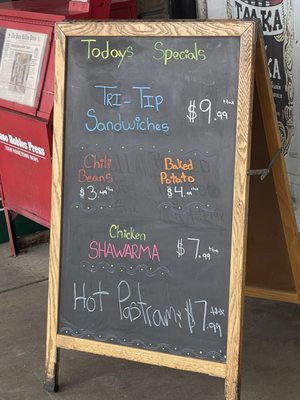 Todays Specials
TRI-TIP $9.99 +tax
Sandwiches
Chili Baked
Beans Potato
$3.99 +tax $4.99 +tax
Chicken
SHAWARMA $7.99 +tax
Hot Pastrami $7.99 +tax
Paso Robles Press
YOUR HOMETOWN NEWS